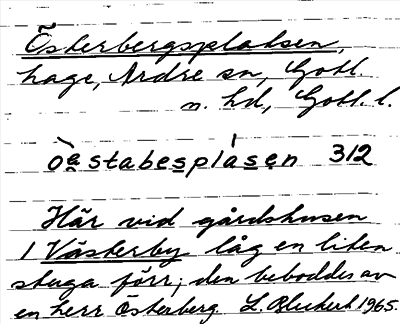 Österbergsplatsen,
hage, Ardre sn, Gotl.
n. hd, Gotl. l.
òe̱stabe̱splá̱se̱n 312
Här vid gårdshusen
i Västerby låg en liten
stuga förr; den beboddes av
en herr Österberg. L. Bleckert 1965.